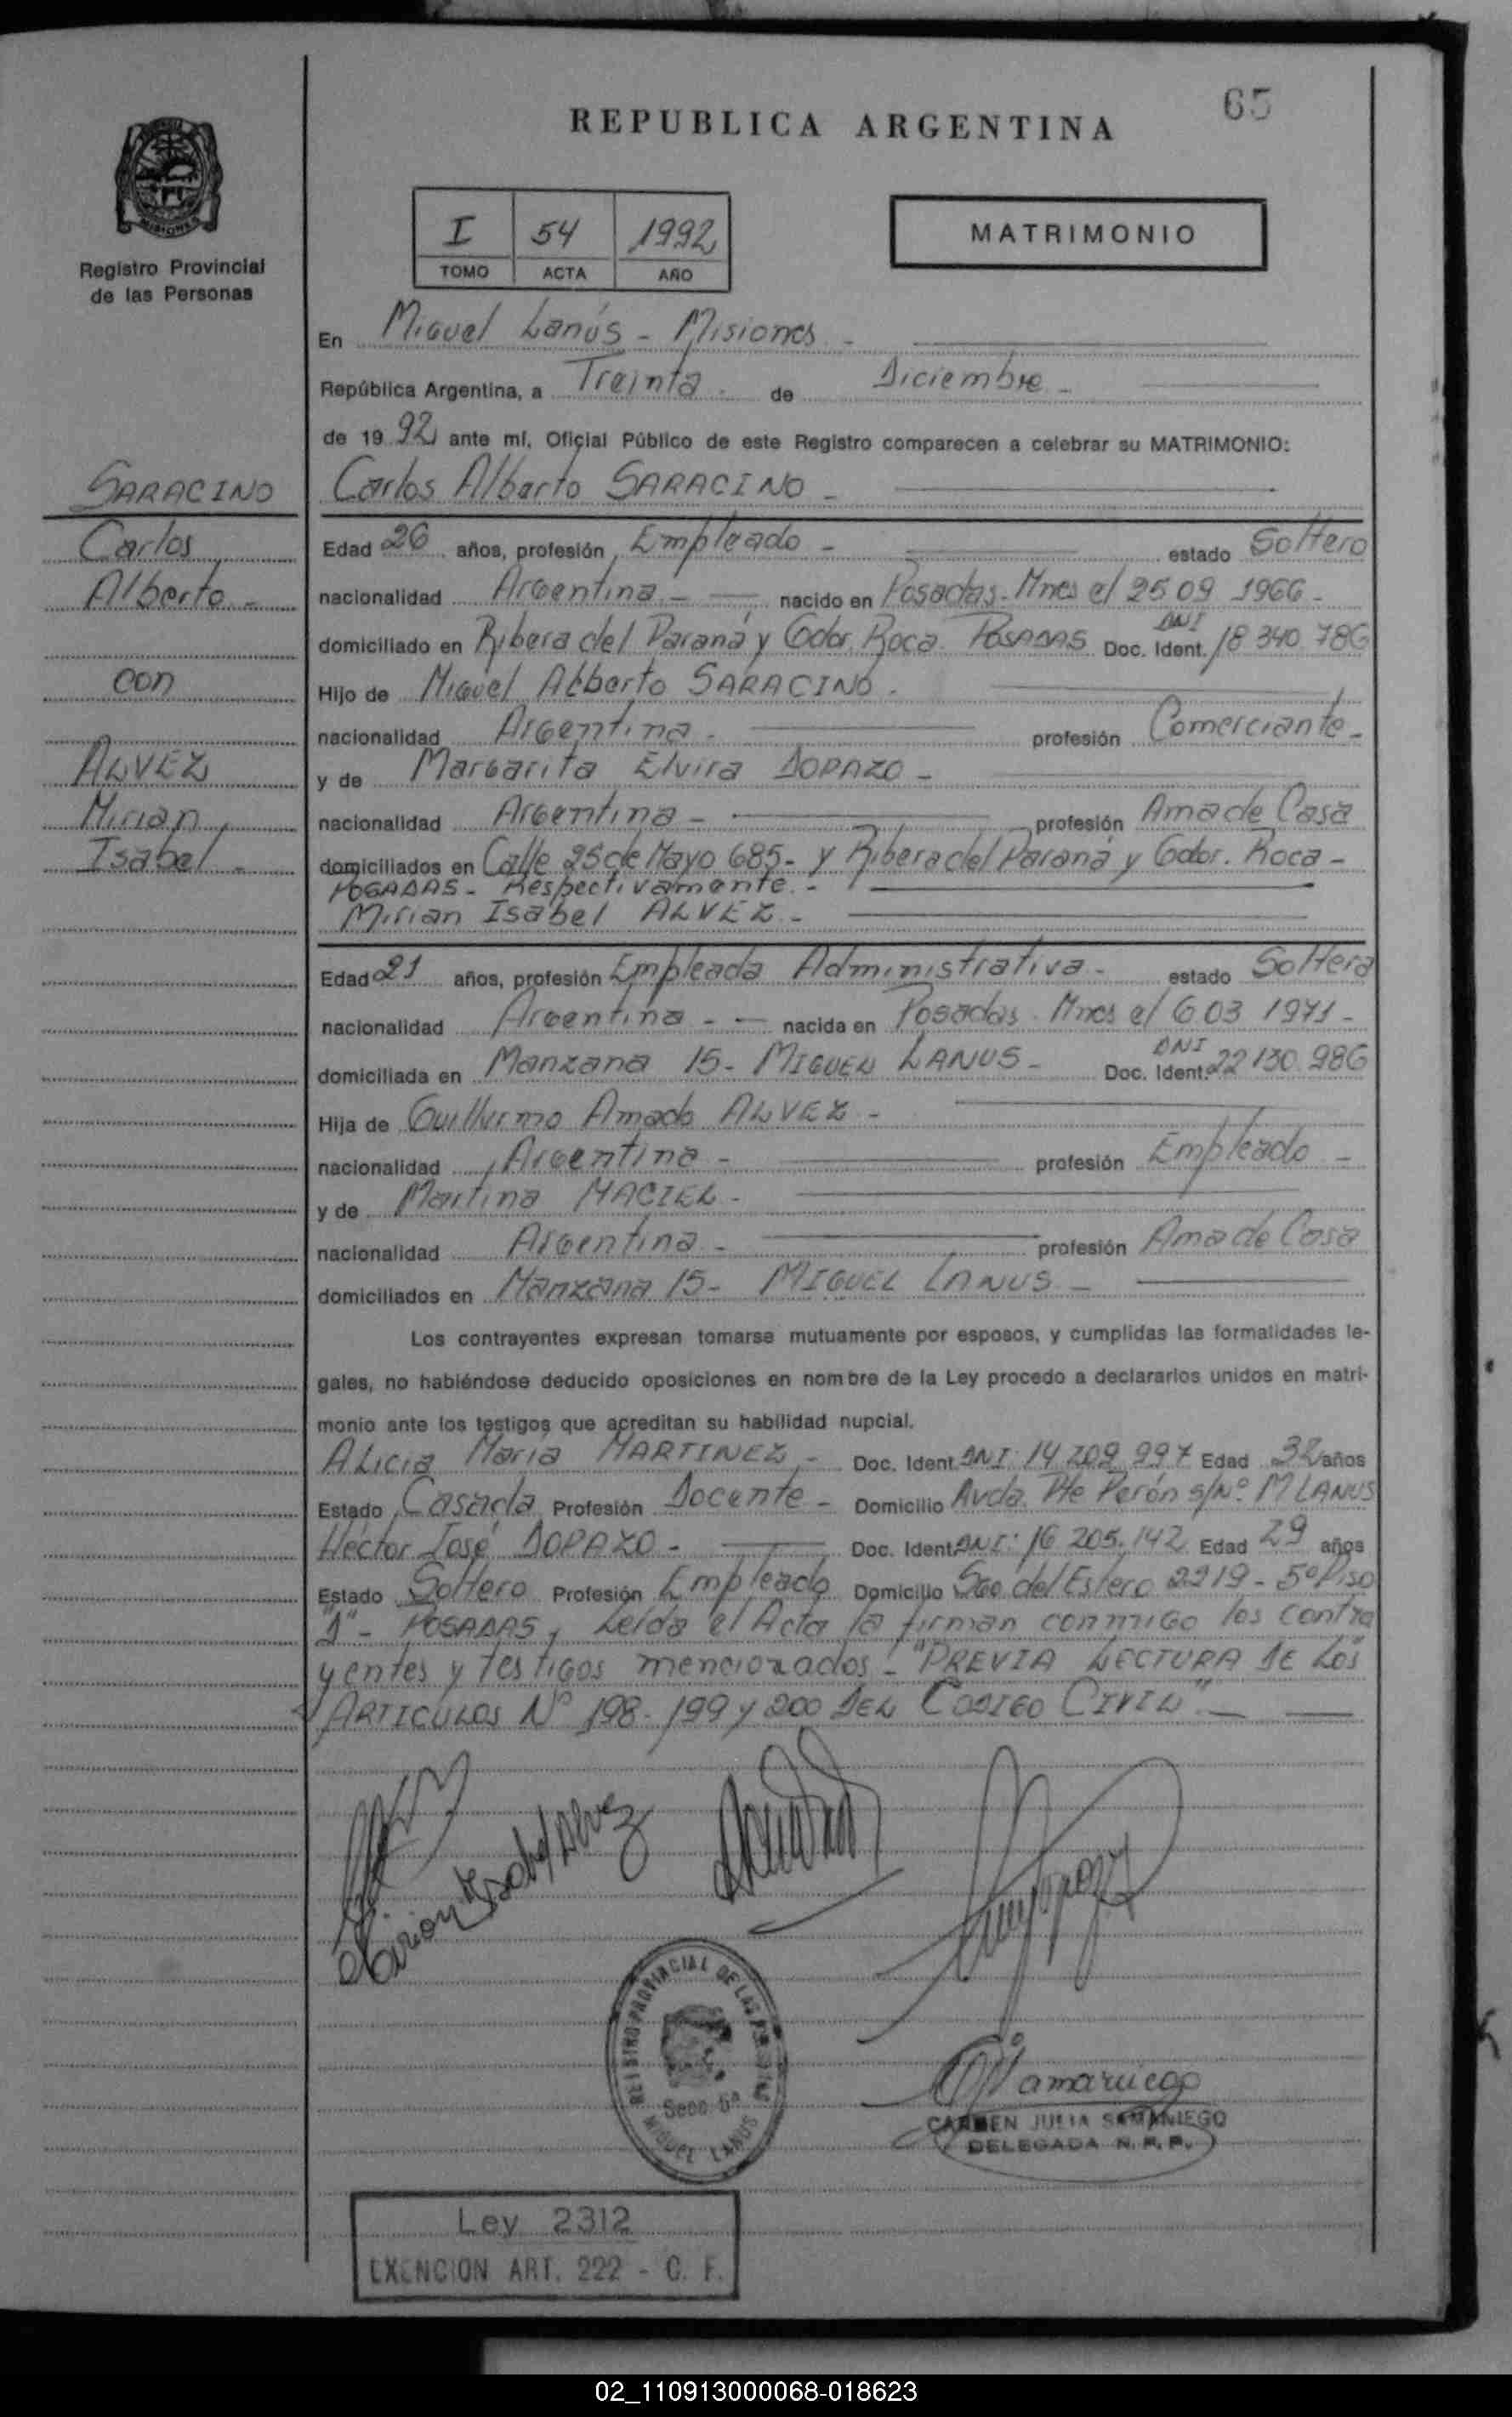 65
REPUBLICA ARGENTINA
MISIONES
Registro Provincial
de las Personas
I 54 1992
TOMO ACTA AÑO
MATRIMONIO
En Miguel Lanús - Misiones -
República Argentina, a Treinta - de Diciembre -
de 19 92 ante mí, Oficial Público de este Registro comparecen a celebrar su MATRIMONIO:
SARACINO
Carlos
Alberto -
con
ALVEZ
Mirian
Isabel -
Carlos Alberto SARACINO -
Edad 26 años, profesión Empleado - estado Soltero
nacionalidad Argentina - nacido en Posadas - Mnes el 25 09 1966 -
domiciliado en Ribera del Paraná y Gdor. Roca POSADAS Doc. Ident. DNI 18 340 786
Hijo de Miguel Alberto SARACINO -
nacionalidad Argentina - profesión Comerciante -
y de Margarita Elvira DOPAZO -
nacionalidad Argentina - profesión Ama de Casa
domiciliados en Calle 25 de Mayo 685 - y Ribera del Paraná y Gdor. Roca -
POSADAS - Respectivamente -
Mirian Isabel ALVEZ -
Edad 21 años, profesión Empleada Administrativa - estado Soltera
nacionalidad Argentina - - nacida en Posadas - Mnes el 6 03 1971 -
domiciliada en Manzana 15 - MIGUEL LANUS - Doc. Ident. DNI 22 130 986
Hija de Guillermo Amado ALVEZ -
nacionalidad Argentina - profesión Empleado -
y de Martina MACIEL -
nacionalidad Argentina - profesión Ama de Casa
domiciliados en Manzana 15 - MIGUEL LANUS -
Los contrayentes expresan tomarse mutuamente por esposos, y cumplidas las formalidades le-
gales, no habiéndose deducido oposiciones en nombre de la Ley procedo a declararlos unidos en matri-
monio ante los testigos que acreditan su habilidad nupcial.
Alicia María MARTINEZ - Doc. Ident. DNI: 14 209 997 Edad 32 años
Estado Casada Profesión Docente - Domicilio Avda. Pte Perón s/Nº M LANUS
Héctor José DOPAZO - Doc. Ident. DNI: 16 205.142 Edad 29 años
Estado Soltero Profesión Empleado Domicilio Sgo. del Estero 2219 - 5º Piso
"1" - POSADAS, Leída el Acta la firman conmigo los contra
yentes y testigos mencionados - "PREVIA LECTURA DE LOS
ARTICULOS Nº 198 - 199 y 200 DEL CODIGO CIVIL" -
Mirian Isabel Alvez
REGISTRO PROVINCIAL DE LAS PERSONAS
Secc 5ª
MIGUEL LANUS
CARMEN JULIA SAMANIEGO
DELEGADA N. R. P.
Ley 2312
EXENCION ART. 222 - C. F.
02_110913000068-018623